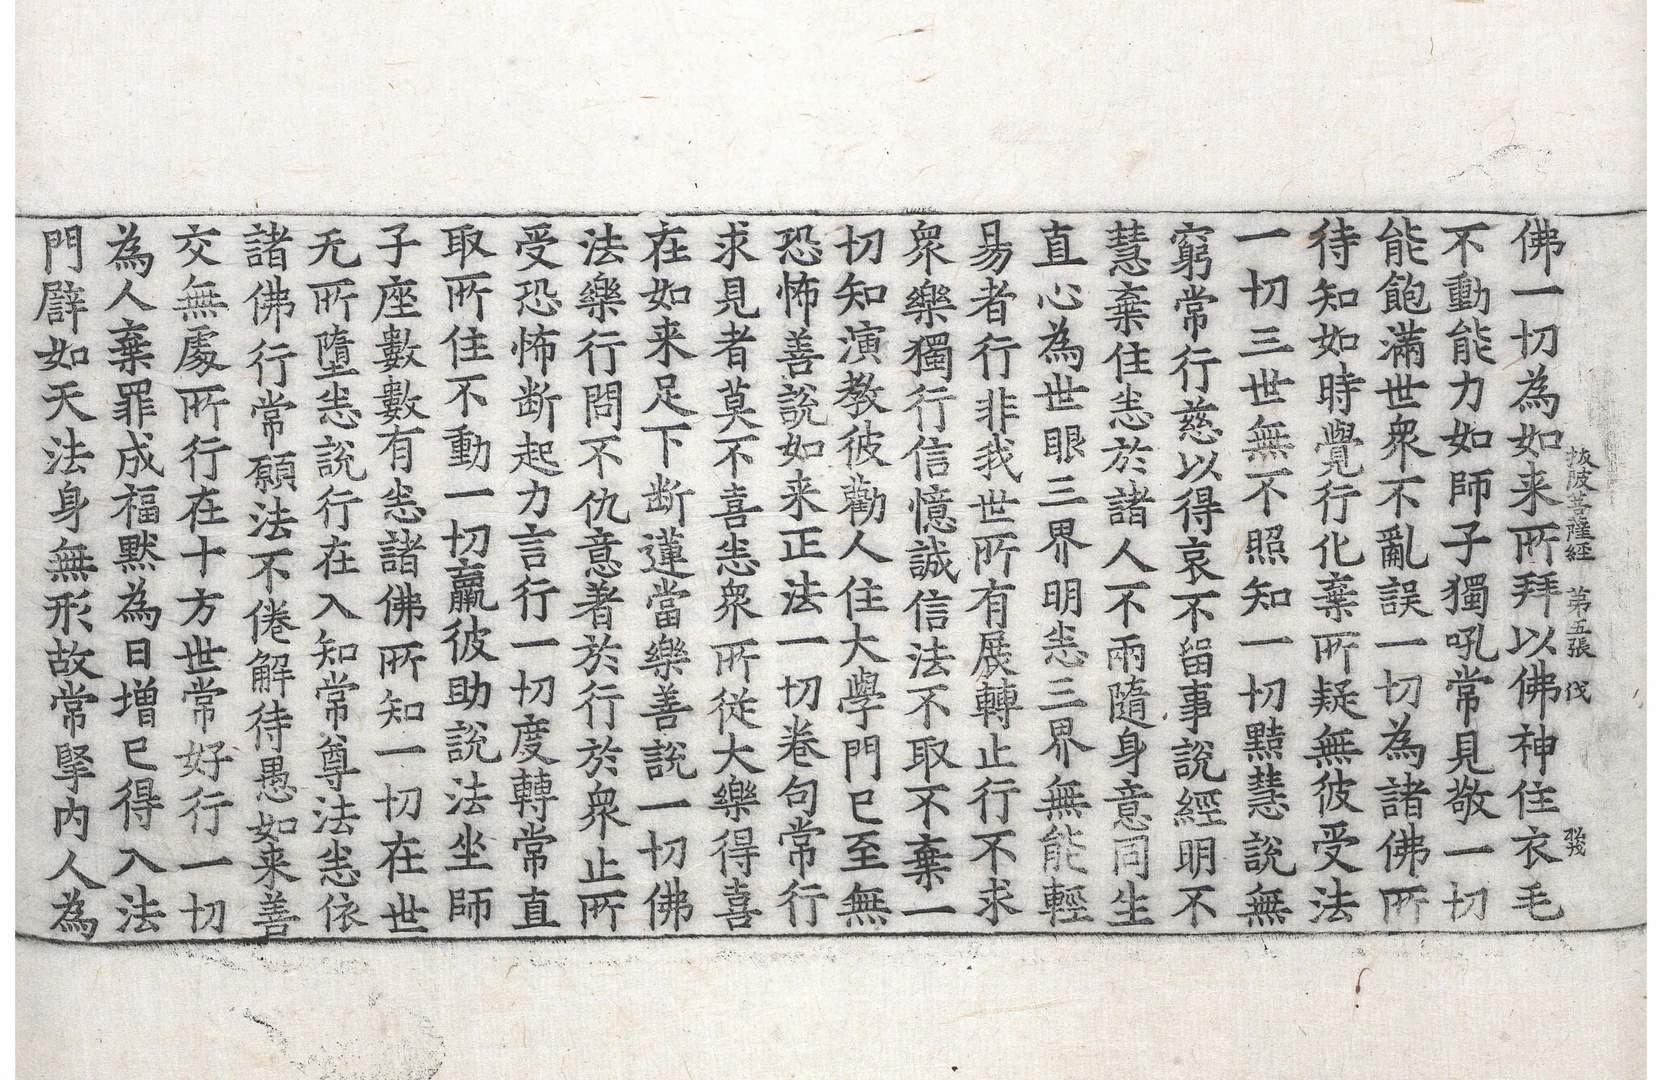 拔陂菩薩經　第五張　伐
佛一切為如来所拜以佛神住衣毛
不動能力如師子獨吼常見敬一切
能飽滿世衆不亂誤一切為諸佛所
待知如時覺行化棄所疑無彼受法
一切三世無不照知一切黠慧說無
窮常行慈以得哀不留事說經明不
慧棄住恚於諸人不兩隨身意同生
直心為世眼三界明恚三界無能輕
易者行非我世所有展轉止行不求
衆樂獨行信憶誠信法不取不棄一
切知演教彼勸人住大學門已至無
恐怖善說如来正法一切卷句常行
求見者莫不喜恚衆所從大樂得喜
在如来足下断蓮當樂善說一切佛
法樂行問不仇意著於行於衆止所
受恐怖断起力言行一切度轉常直
取所住不動一切羸彼助說法坐師
子座數數有恚諸佛所知一切在世
无所墮恚說行在入知常尊法恚依
諸佛行常願法不倦解待愚如来善
交無處所行在十方世常好行一切
為人棄罪成福默為日增已得入法
門辟如天法身無形故常堅内人為